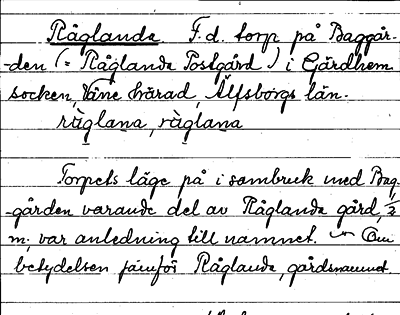 Råglanda F. d. torp på Baggår-
-den (= Råglanda Postgård) i Gärdhem
socken, Väne härad, Älfsborgs län.
ràglana, ràglana
Torpets läge på i sambruk med Bag-
-gården varande del av Råglanda gård, 1/2
m: var anledning till namnet. ~ Om
betydelsen jämför Råglanda, gårdsnamnet